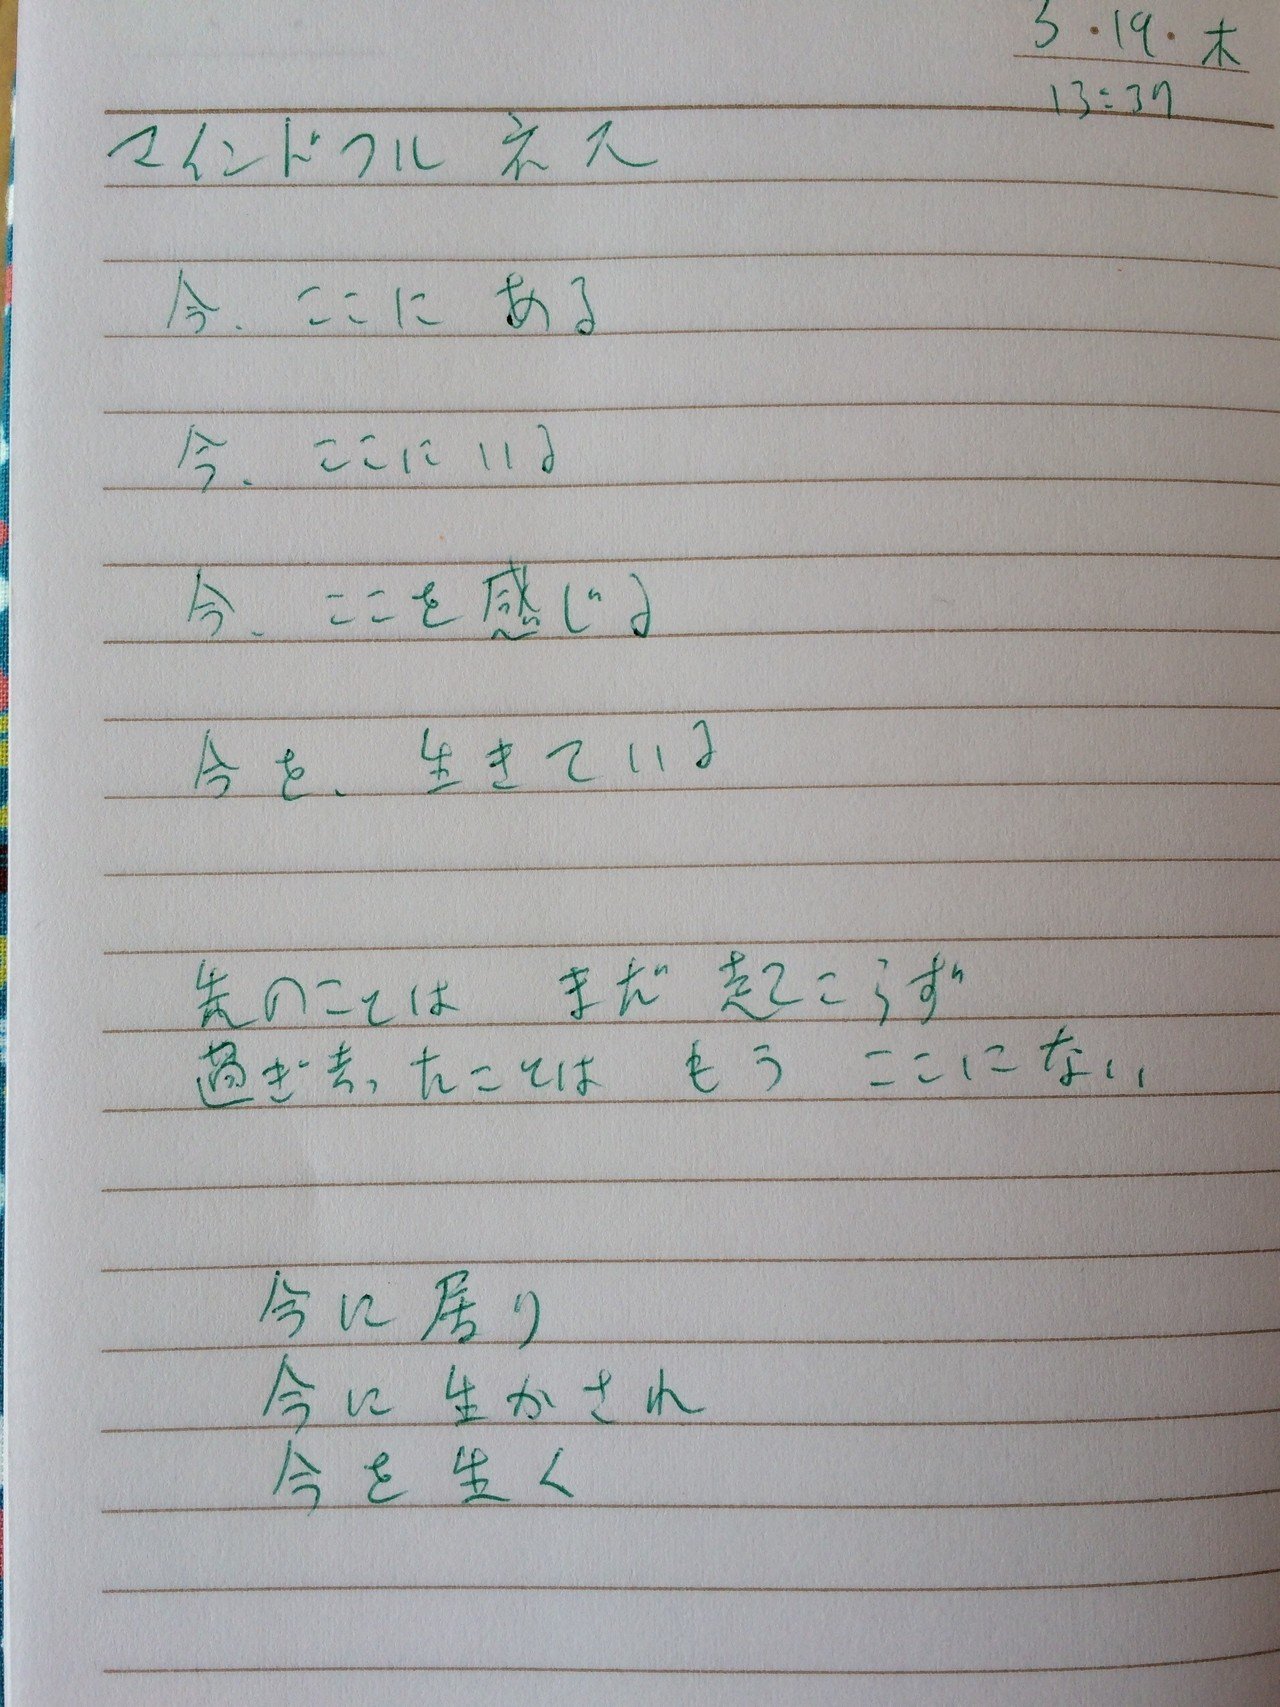 3・19・木
13:37
マインドフルネス
今、ここにある
今、ここにいる
今、ここを感じる
今を、生きている
先のことは まだ 起こらず
過ぎ去ったことは もう ここにない
今に居り
今に生かされ
今を生く